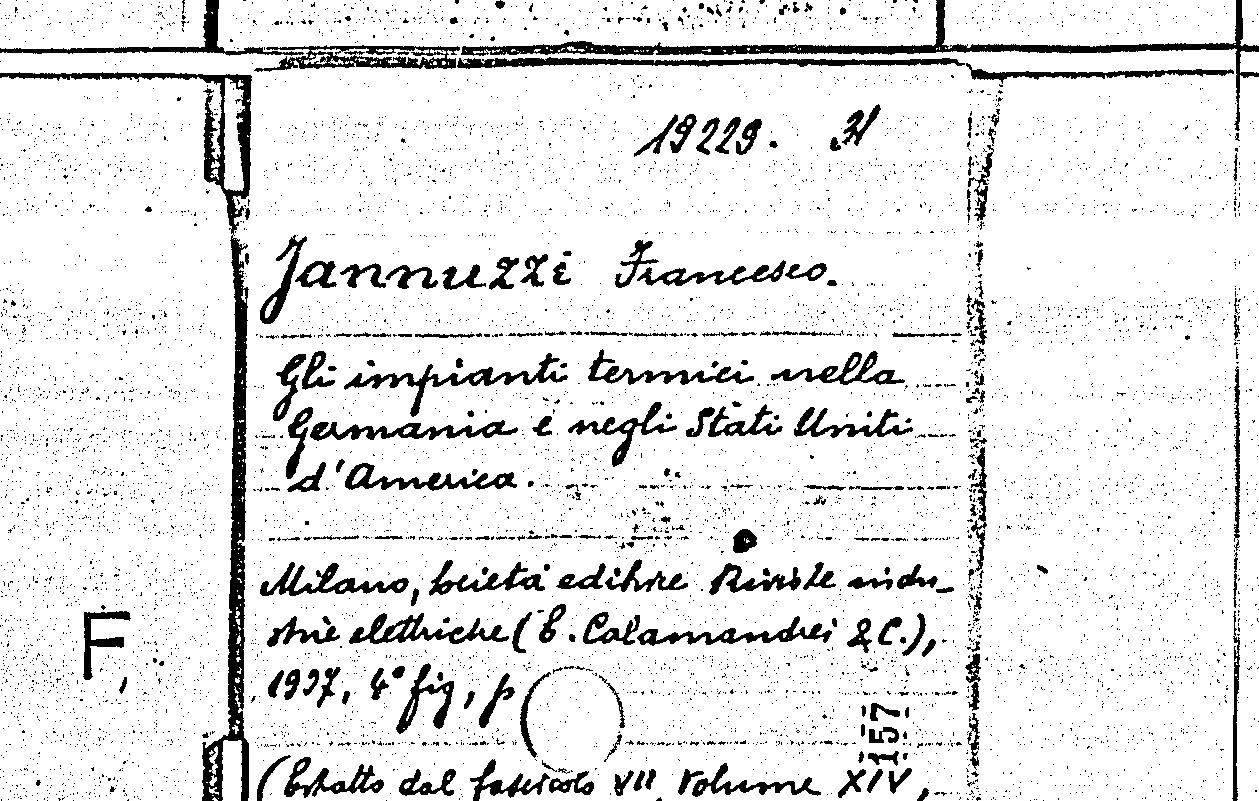 19229. 31
Jannuzzi Francesco.
Gli impianti termici nella
Germania e negli Stati Uniti
d'America.
Milano, società editrice Riviste indu_
strie elettriche (E. Calamandrei & C.),
1937, 4° fig, p
157
(Estratto dal fascicolo VII Volume XIV,
F,